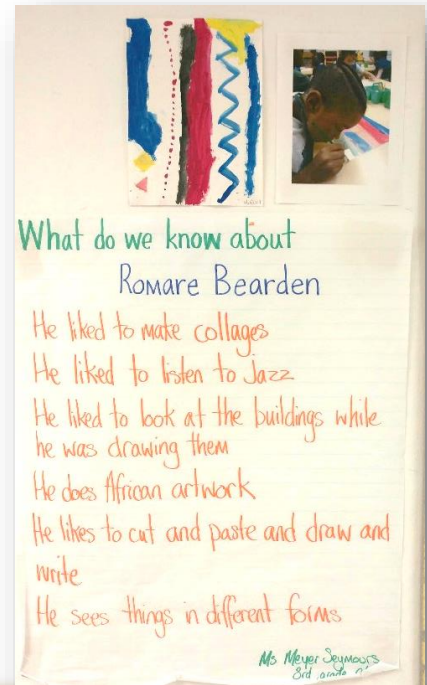 What do we know about
Romare Bearden
He liked to make collages
He liked to listen to Jazz
He liked to look at the buildings while
he was drawing them
He does African artwork
He likes to cut and paste and draw and
write
He sees things in different forms
Ms Meyer Seymours
3rd grade